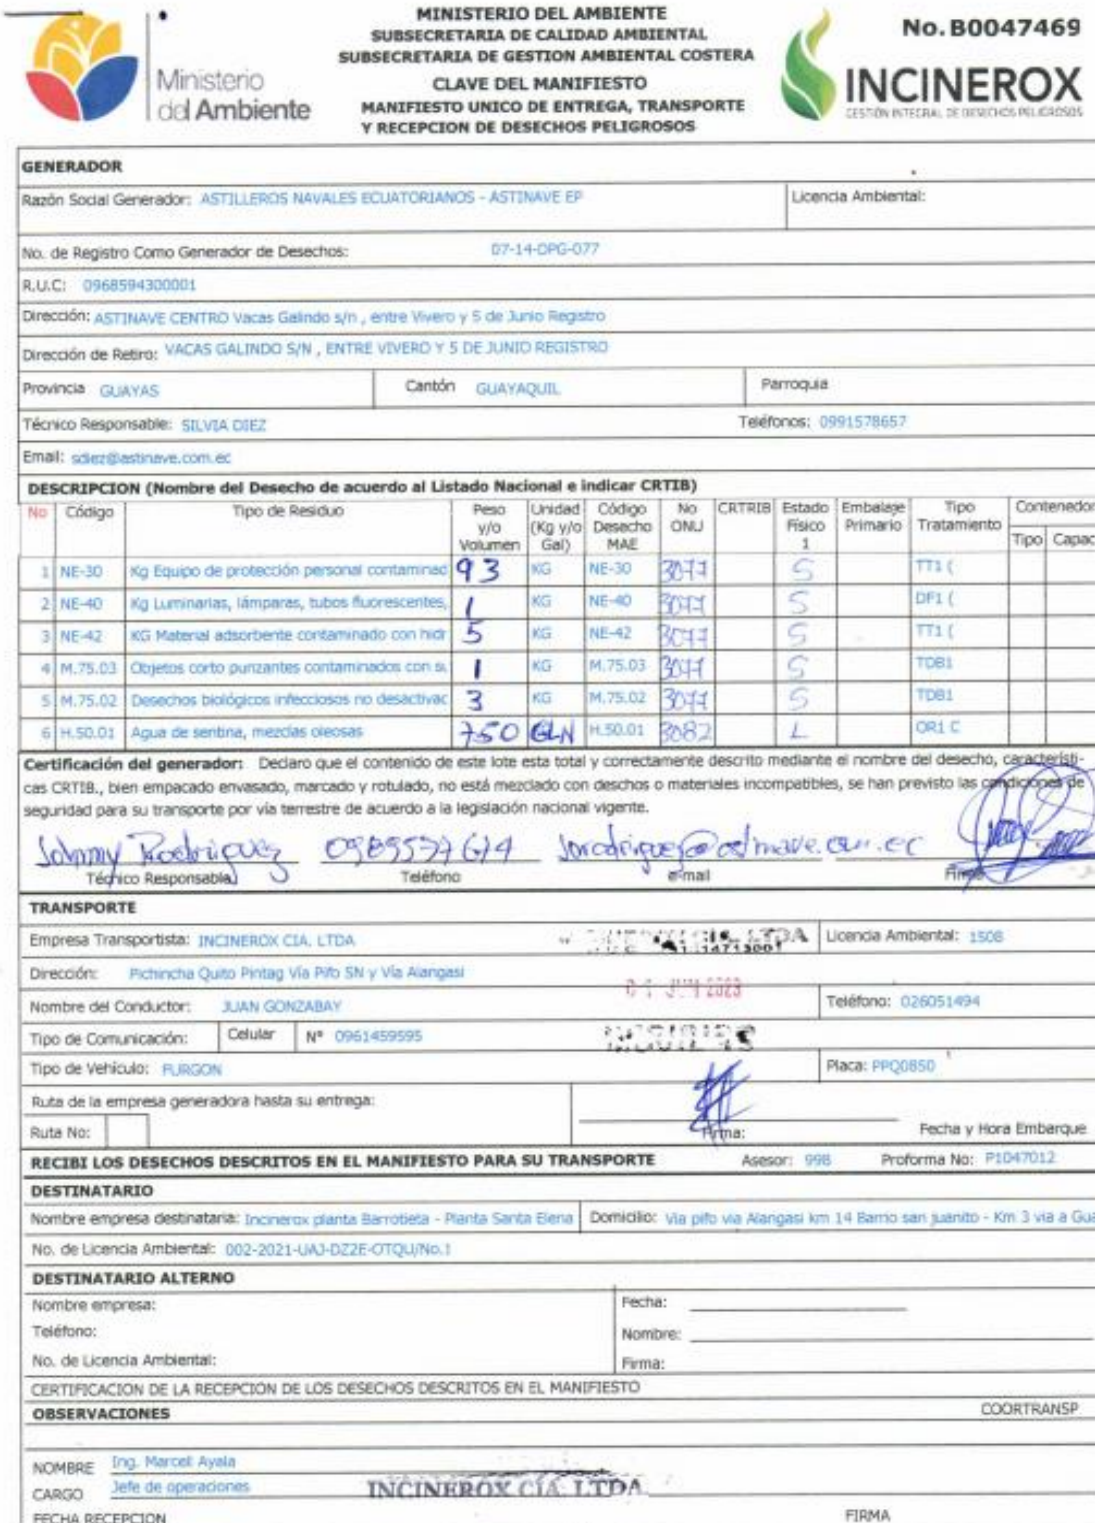 MINISTERIO DEL AMBIENTE
SUBSECRETARIA DE CALIDAD AMBIENTAL
SUBSECRETARIA DE GESTION AMBIENTAL COSTERA
CLAVE DEL MANIFIESTO
MANIFIESTO UNICO DE ENTREGA, TRANSPORTE
Y RECEPCION DE DESECHOS PELIGROSOS
Ministerio
del Ambiente
No. B0047469
INCINEROX
GESTIÓN INTEGRAL DE DESECHOS PELIGROSOS
GENERADOR
Razón Social Generador: ASTILLEROS NAVALES ECUATORIANOS - ASTINAVE EP Licencia Ambiental:
No. de Registro Como Generador de Desechos: 07-14-DPG-077
R.U.C: 0968594300001
Dirección: ASTINAVE CENTRO Vacas Galindo s/n , entre Vivero y 5 de Junio Registro
Dirección de Retiro: VACAS GALINDO S/N , ENTRE VIVERO Y 5 DE JUNIO REGISTRO
Provincia GUAYAS Cantón GUAYAQUIL Parroquia
Técnico Responsable: SILVIA DIEZ Teléfonos: 0991578657
Email: sdiez@astinave.com.ec
DESCRIPCION (Nombre del Desecho de acuerdo al Listado Nacional e indicar CRTIB)
No Código Tipo de Residuo Peso y/o Volumen Unidad (Kg y/o Gal) Código Desecho MAE No ONU CRTRIB Estado Físico 1 Embalaje Primario Tipo Tratamiento Contenedor Tipo Capac
1 NE-30 Kg Equipo de protección personal contaminad 93 KG NE-30 3077 S TT1 (
2 NE-40 Kg Luminarias, lámparas, tubos fluorescentes, 1 KG NE-40 3077 S DF1 (
3 NE-42 KG Material adsorbente contaminado con hidr 5 KG NE-42 3077 S TT1 (
4 M.75.03 Objetos corto punzantes contaminados con su 1 KG M.75.03 3077 S TDB1
5 M.75.02 Desechos biológicos infecciosos no desactivac 3 KG M.75.02 3077 S TDB1
6 H.50.01 Agua de sentina, mezclas oleosas 750 GLN H.50.01 3082 L OR1 C
Certificación del generador: Declaro que el contenido de este lote esta total y correctamente descrito mediante el nombre del desecho, característi-
cas CRTIB., bien empacado envasado, marcado y rotulado, no está mezclado con deschos o materiales incompatibles, se han previsto las condiciones de
seguridad para su transporte por vía terrestre de acuerdo a la legislación nacional vigente.
Johnny Rodriguez
Técnico Responsable Teléfono e-mail Firma
TRANSPORTE
Empresa Transportista: INCINEROX CIA. LTDA CIA. LTDA Licencia Ambiental: 1508
Dirección: Pichincha Quito Pintag Vía Pifo SN y Vía Alangasi
JUN 2023
Nombre del Conductor: JUAN GONZABAY Teléfono: 026051494
Tipo de Comunicación: Celular Nº 0961459595
Tipo de Vehículo: FURGON Placa: PPQ0850
Ruta de la empresa generadora hasta su entrega:
Ruta No: Firma: Fecha y Hora Embarque
RECIBI LOS DESECHOS DESCRITOS EN EL MANIFIESTO PARA SU TRANSPORTE Asesor: 998 Proforma No: P1047012
DESTINATARIO
Nombre empresa destinataria: Incinerox planta Barrotieta - Planta Santa Elena Domicilio: Via pifo via Alangasi km 14 Barrio san juanito - Km 3 via a Gua
No. de Licencia Ambiental: 002-2021-UAJ-DZ2E-OTQU/No.1
DESTINATARIO ALTERNO
Nombre empresa: Fecha:
Teléfono: Nombre:
No. de Licencia Ambiental: Firma:
CERTIFICACION DE LA RECEPCION DE LOS DESECHOS DESCRITOS EN EL MANIFIESTO
OBSERVACIONES COORTRANSP
NOMBRE Ing. Marcell Ayala
CARGO Jefe de operaciones INCINEROX CIA. LTDA.
FECHA RECEPCION FIRMA